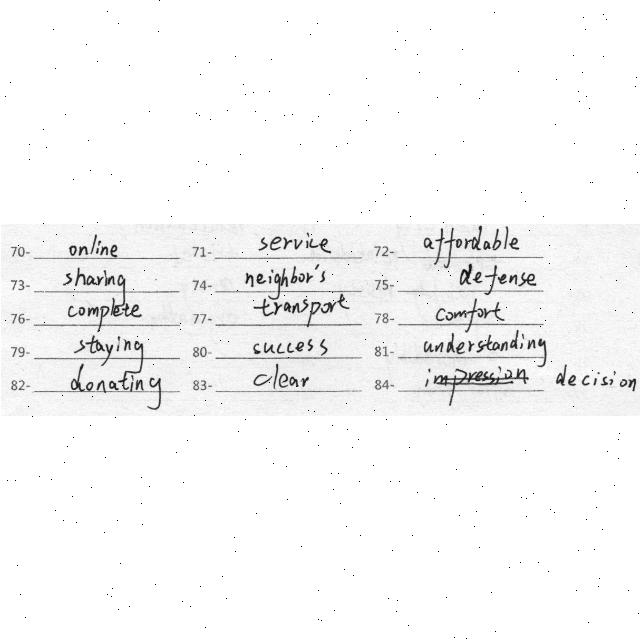 70- online 71- service 72- affordable
73- sharing 74- neighbor's 75- defense
76- complete 77- transport 78- comfort
79- staying 80- success 81- understanding
82- donating 83- clear 84- impression decision